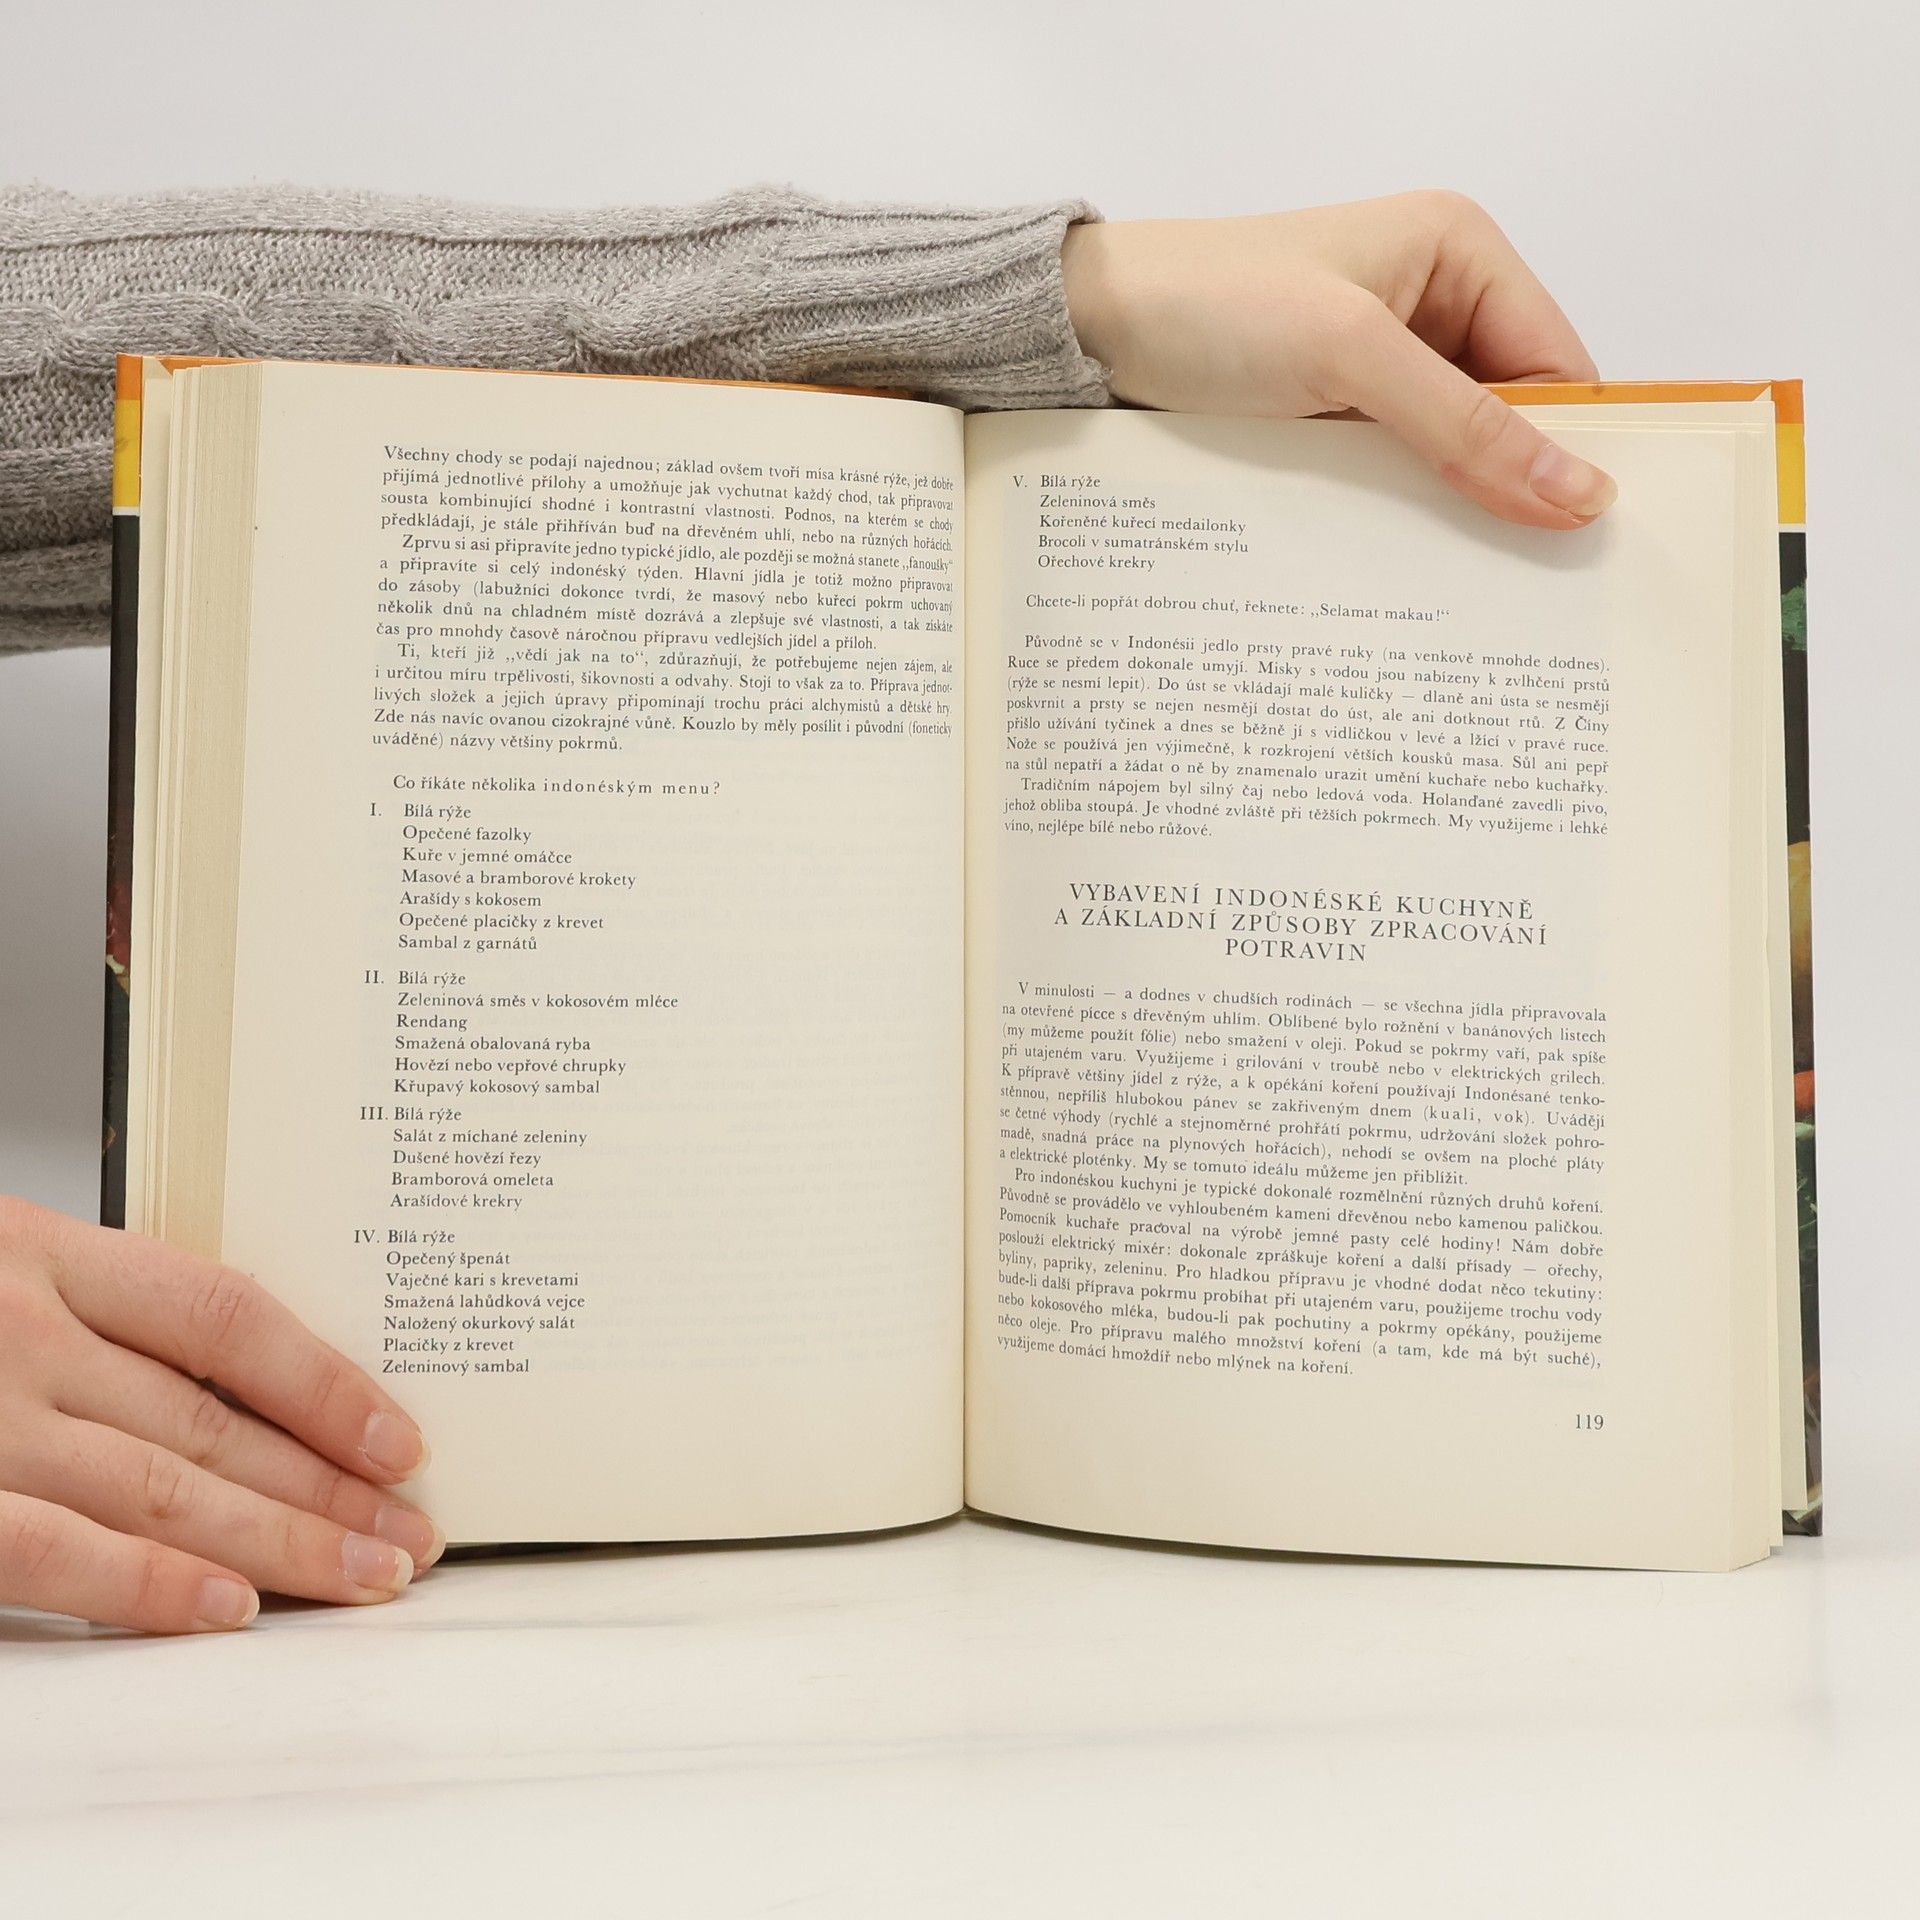 Všechny chody se podají najednou; základ ovšem tvoří mísa krásné rýže, jež dobře
přijímá jednotlivé přílohy a umožňuje jak vychutnat každý chod, tak připravovat
sousta kombinující shodné i kontrastní vlastnosti. Podnos, na kterém se chody
předkládají, je stále přihříván buď na dřevěném uhlí, nebo na různých hořácích.
Zprvu si asi připravíte jedno typické jídlo, ale později se možná stanete „fanoušky“
a připravíte si celý indonéský týden. Hlavní jídla je totiž možno připravovat
do zásoby (labužníci dokonce tvrdí, že masový nebo kuřecí pokrm uchovaný
několik dnů na chladném místě dozrává a zlepšuje své vlastnosti, a tak získáte
čas pro mnohdy časově náročnou přípravu vedlejších jídel a příloh.
Ti, kteří již „vědí jak na to“, zdůrazňují, že potřebujeme nejen zájem, ale
i určitou míru trpělivosti, šikovnosti a odvahy. Stojí to však za to. Příprava jednot-
livých složek a jejich úpravy připomínají trochu práci alchymistů a dětské hry.
Zde nás navíc ovanou cizokrajné vůně. Kouzlo by měly posílit i původní (foneticky
uváděné) názvy většiny pokrmů.
Co říkáte několika indonéským menu?
I. Bílá rýže
Opečené fazolky
Kuře v jemné omáčce
Masové a bramborové krokety
Arašídy s kokosem
Opečené placičky z krevet
Sambal z garnátů
II. Bílá rýže
Zeleninová směs v kokosovém mléce
Rendang
Smažená obalovaná ryba
Hovězí nebo vepřové chrupky
Křupavý kokosový sambal
III. Bílá rýže
Salát z míchané zeleniny
Dušené hovězí řezy
Bramborová omeleta
Arašídové krekry
IV. Bílá rýže
Opečený špenát
Vaječné kari s krevetami
Smažená lahůdková vejce
Naložený okurkový salát
Placičky z krevet
Zeleninový sambal
V. Bílá rýže
Zeleninová směs
Kořeněné kuřecí medailonky
Brocoli v sumatránském stylu
Ořechové krekry
Chcete-li popřát dobrou chuť, řeknete: „Selamat makau!“
Původně se v Indonésii jedlo prsty pravé ruky (na venkově mnohde dodnes).
Ruce se předem dokonale umyjí. Misky s vodou jsou nabízeny k zvlhčení prstů
(rýže se nesmí lepit). Do úst se vkládají malé kuličky — dlaně ani ústa se nesmějí
poskvrnit a prsty se nejen nesmějí dostat do úst, ale ani dotknout rtů. Z Číny
přišlo užívání tyčinek a dnes se běžně jí s vidličkou v levé a lžící v pravé ruce.
Nože se používá jen výjimečně, k rozkrojení větších kousků masa. Sůl ani pepř
na stůl nepatří a žádat o ně by znamenalo urazit umění kuchaře nebo kuchařky.
Tradičním nápojem byl silný čaj nebo ledová voda. Holanďané zavedli pivo,
jehož obliba stoupá. Je vhodné zvláště při těžších pokrmech. My využijeme i lehké
víno, nejlépe bílé nebo růžové.
VYBAVENÍ INDONÉSKÉ KUCHYNĚ
A ZÁKLADNÍ ZPŮSOBY ZPRACOVÁNÍ
POTRAVIN
V minulosti — a dodnes v chudších rodinách — se všechna jídla připravovala
na otevřené pícce s dřevěným uhlím. Oblíbené bylo rožnění v banánových listech
(my můžeme použít fólie) nebo smažení v oleji. Pokud se pokrmy vaří, pak spíše
při utajeném varu. Využijeme i grilování v troubě nebo v elektrických grilech.
K přípravě většiny jídel z rýže, a k opékání koření používají Indonésané tenko-
stěnnou, nepříliš hlubokou pánev se zakřiveným dnem (kuali, vok). Uvádějí
se četné výhody (rychlé a stejnoměrné prohřátí pokrmu, udržování složek pohro-
madě, snadná práce na plynových hořácích), nehodí se ovšem na ploché pláty
a elektrické ploténky. My se tomuto ideálu můžeme jen přiblížit.
Pro indonéskou kuchyni je typické dokonalé rozmělnění různých druhů koření.
Původně se provádělo ve vyhloubeném kameni dřevěnou nebo kamenou paličkou.
Pomocník kuchaře pracoval na výrobě jemné pasty celé hodiny! Nám dobře
poslouží elektrický mixér: dokonale zpráškuje koření a další přísady — ořechy,
byliny, papriky, zeleninu. Pro hladkou přípravu je vhodné dodat něco tekutiny:
bude-li další příprava pokrmu probíhat při utajeném varu, použijeme trochu vody
nebo kokosového mléka, budou-li pak pochutiny a pokrmy opékány, použijeme
něco oleje. Pro přípravu malého množství koření (a tam, kde má být suché),
využijeme domácí hmoždíř nebo mlýnek na koření.
119